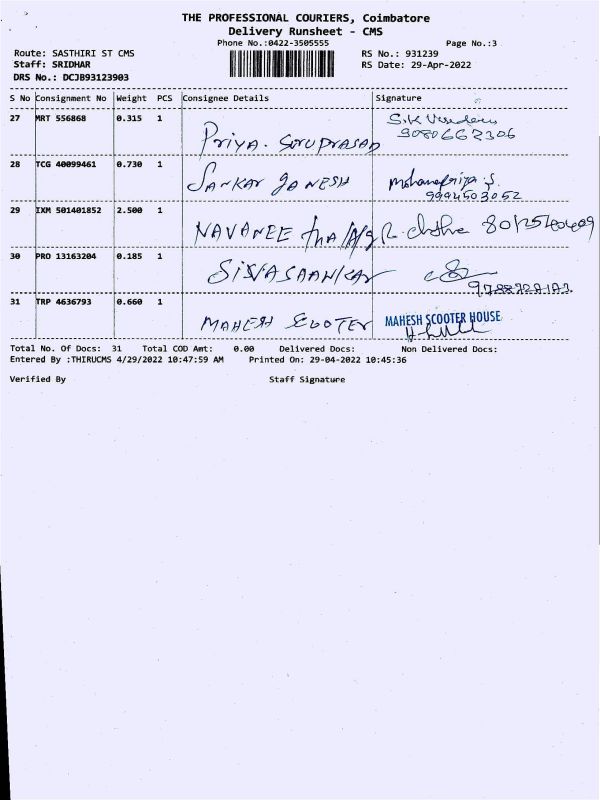 THE PROFESSIONAL COURIERS, Coimbatore
Delivery Runsheet - CMS
Phone No.:0422-3505555 Page No.:3
Route: SASTHIRI ST CMS RS No.: 931239
Staff: SRIDHAR RS Date: 29-Apr-2022
DRS No.: DCJB93123903
S No Consignment No Weight PCS Consignee Details Signature
27 MRT 556868 0.315 1 Priya. 9080662306
28 TCG 40099461 0.730 1 SANKAr GANESH Mohanapriya.S.
9994503052
29 IXM 501401852 2.500 1
30 PRO 13163204 0.185 1 SiSVASAANKAr
31 TRP 4636793 0.660 1 MAHESH SCOOTEr MAHESH SCOOTER HOUSE
Total No. Of Docs: 31 Total COD Amt: 0.00 Delivered Docs: Non Delivered Docs:
Entered By :THIRUCMS 4/29/2022 10:47:59 AM Printed On: 29-04-2022 10:45:36
Verified By Staff Signature